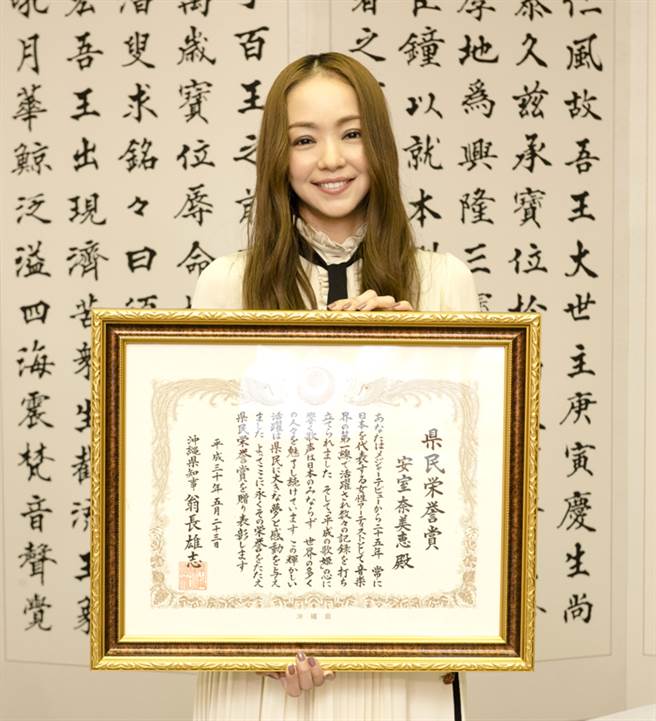 仁風故吾王大世主庚寅慶生尚
泰久茲承寶位於
厚地爲興隆三
鐘以就本
着之
百王之前
萬歲寶位辱命
叟求銘々曰須
宏吾王出現濟苦
吼月華鯨泛溢四海震梵音聲覺
県民栄誉賞
安室奈美恵 殿
あなたはメジャーデビューから二十五年 常に
日本を代表する女性アーティストとして音楽
界の第一線で活躍され数々の記録を打ち
立てられました そして“平成の歌姫”の心に
響く歌声は日本のみならず 世界の多く
の人々を魅了し続けています この輝かしい
活躍は県民に大きな夢と感動を与え
ました よってここに永くその栄誉をたたえ
県民栄誉賞を贈り表彰します
平成三十年五月二十三日
沖縄県知事 翁長雄志
沖縄県